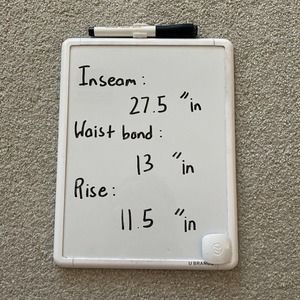 Inseam:
27.5 "in
Waist band:
13 "in
Rise:
11.5 "in
U BRANDS